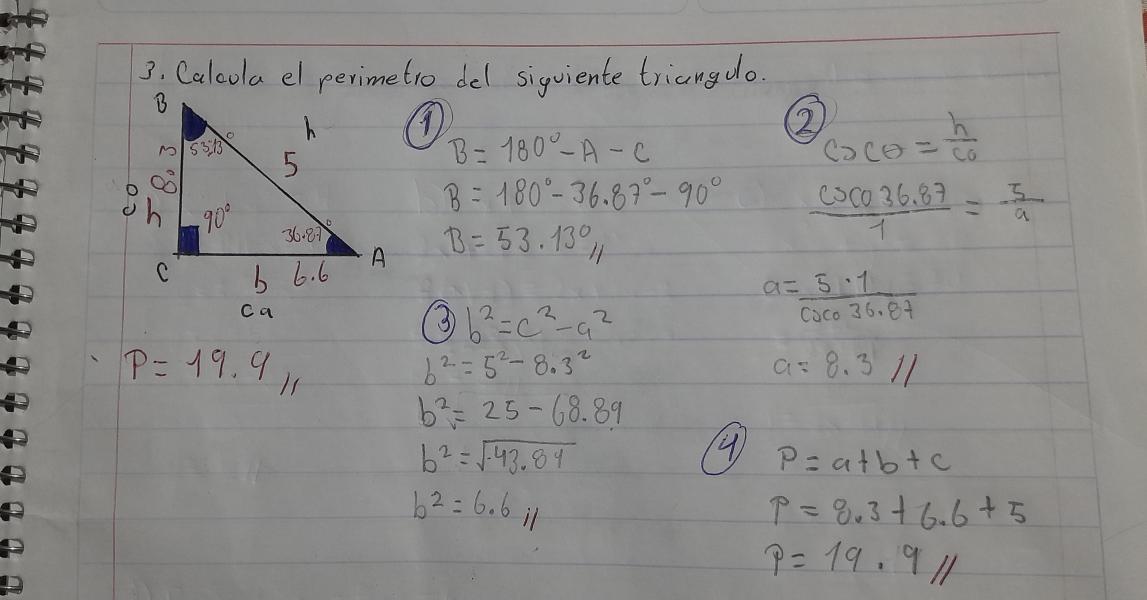 3. Calcula el perimetro del siguiente triangulo.
B
h
53.13°
5
co
8.3
h
90°
36.87°
C
A
b 6.6
ca
P = 19.9 //
①
B = 180° - A - C
B = 180° - 36.87° - 90°
B = 53.13° //
②
cscθ = h/co
csco 36.87 / 1 = 5/a
a = 5·1 / csco 36.87
a = 8.3 //
③ b² = c² - a²
b² = 5² - 8.3²
b² = 25 - 68.89
b² = √-43.89
b² = 6.6 //
④
P = a + b + c
P = 8.3 + 6.6 + 5
P = 19.9 //